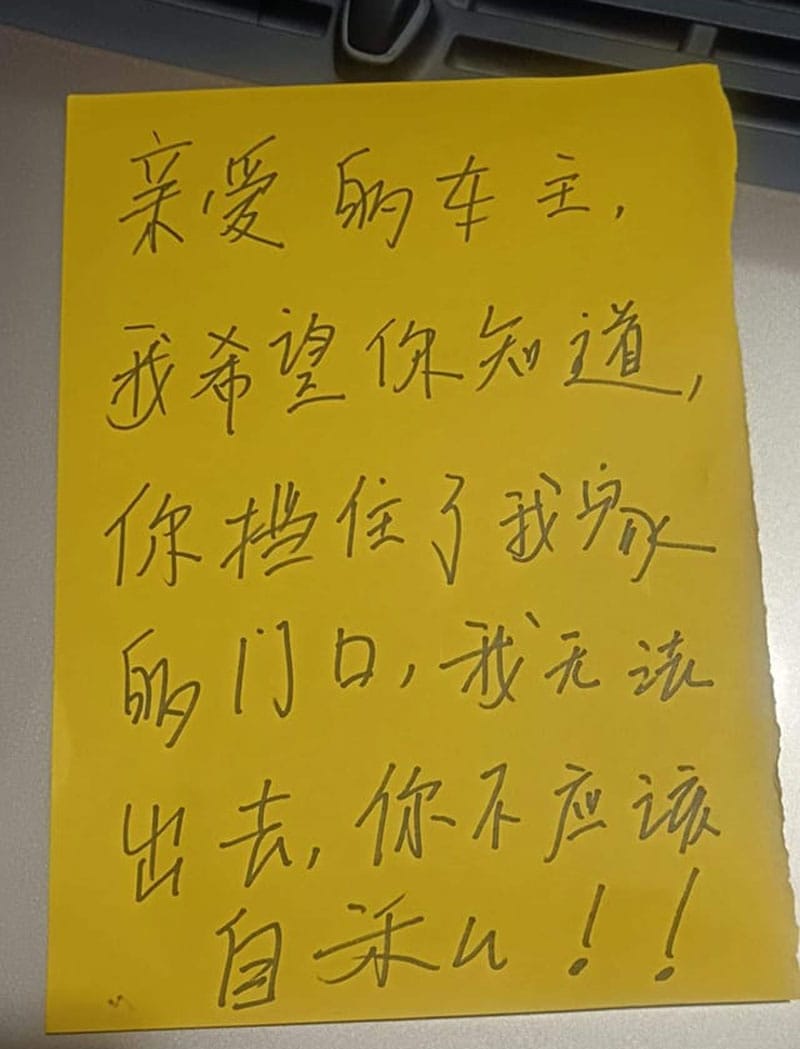 亲爱的车主,
我希望你知道,
你挡住了我家
的门口,我无法
出去,你不应该
自私!!